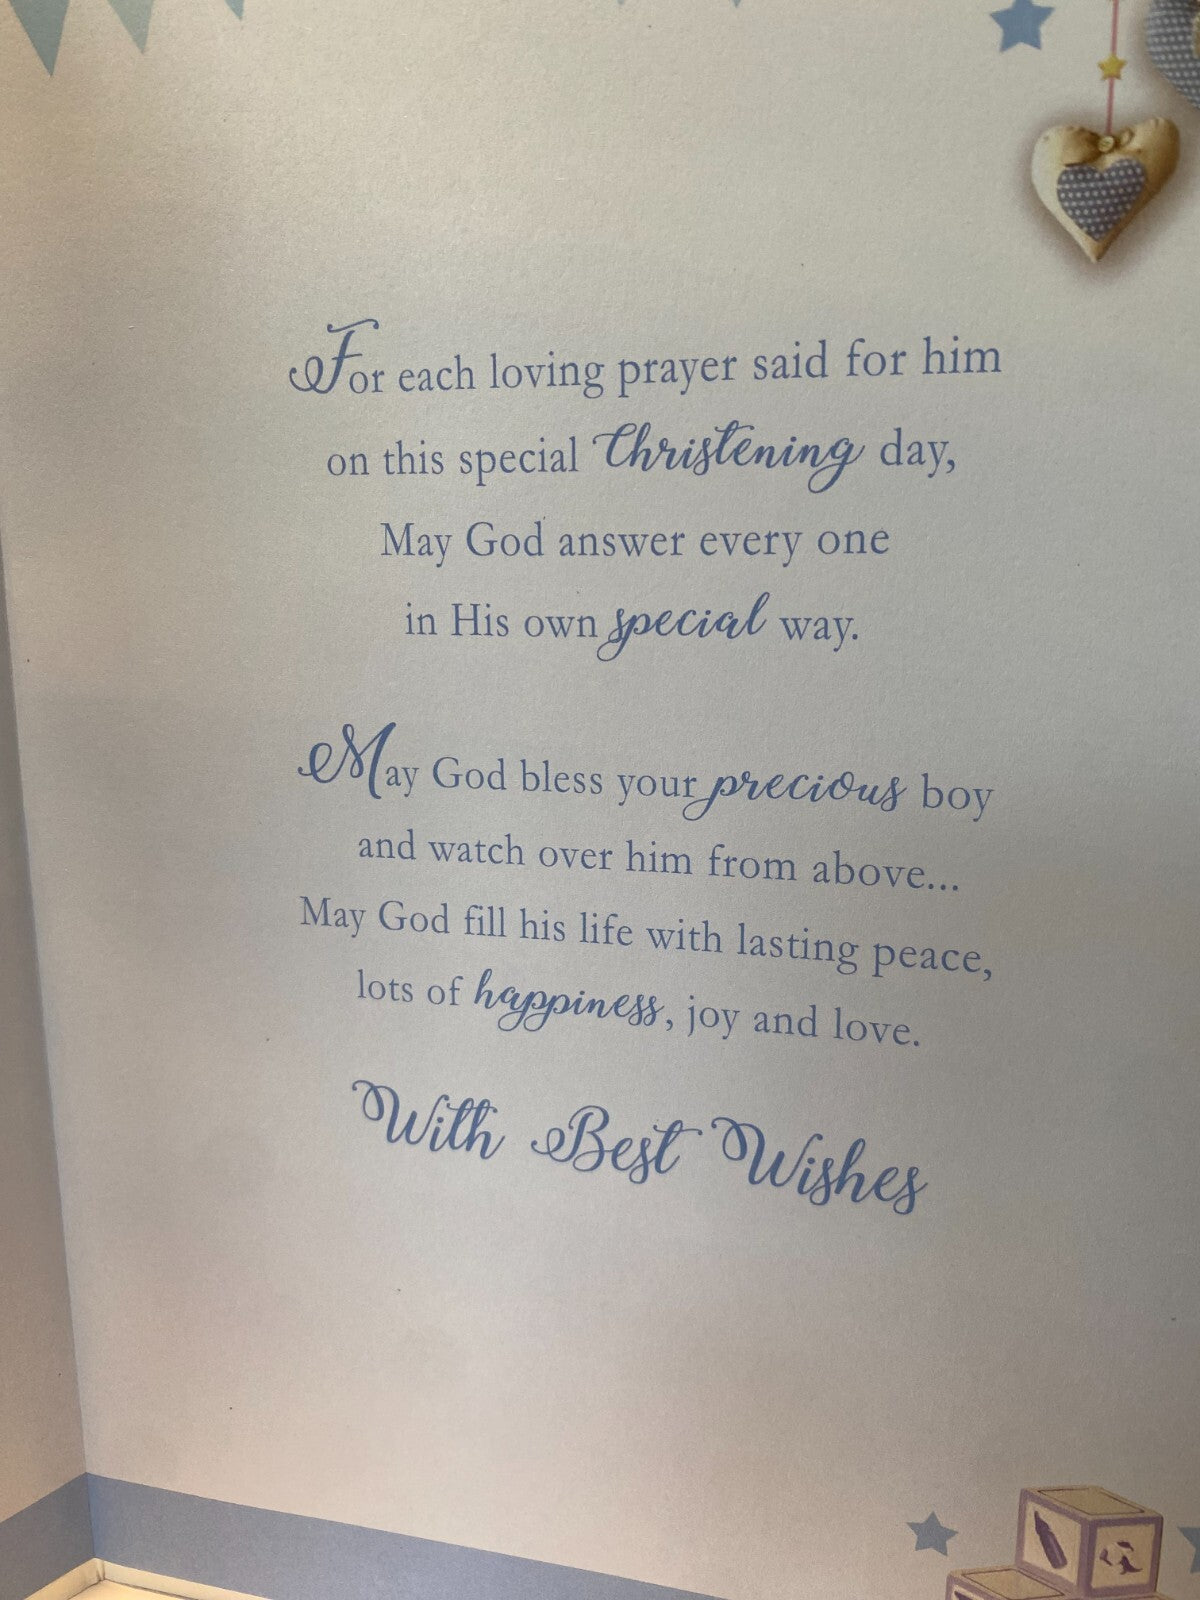 For each loving prayer said for him
on this special Christening day,
May God answer every one
in His own special way.
May God bless your precious boy
and watch over him from above...
May God fill his life with lasting peace,
lots of happiness, joy and love.
With Best Wishes